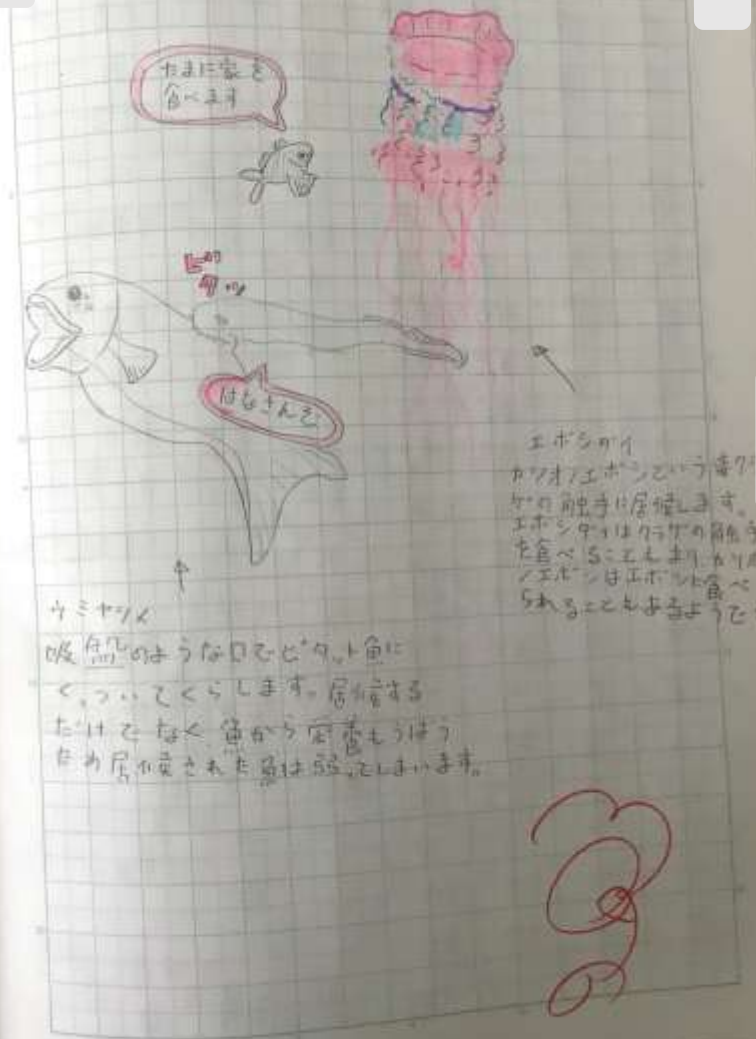 たまに家を
食べます
ピタッ
はなさんぞ
エボシダイ
カツオノエボシという毒クラ
ゲの触手に居候します。
エボシダイはクラゲの触手
を食べることもあり、カツオ
ノエボシはエボシに食べ
られることもあるようで
ウミヤツメ
吸盤のような口でピタット魚に
くっついてくらします。居候する
だけでなく魚から栄養もうばう
ため居候された魚は弱ってしまいます。